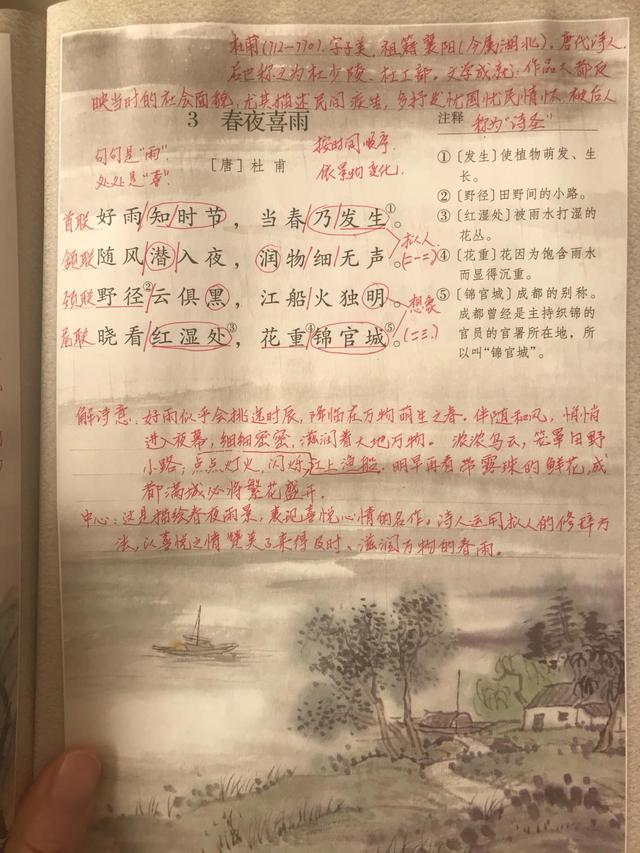 杜甫(712-770),字子美,祖籍襄阳(今属湖北),唐代诗人,
后世称之为杜少陵、杜工部。文学成就:作品大都反
映当时的社会面貌,尤其描述民间疾苦,多抒发忧国忧民情怀,被后人
称为“诗圣”
3 春夜喜雨
[唐]杜甫
句句是“雨”
处处是“喜”
按时间顺序
依景物变化.
首联 好雨/知/时节,当春/乃/发生①。
颔联 随风/潜/入夜,润物/细/无声。
拟人
(二一二)
颈联 野径②/云俱/黑,江船/火独/明。
想象
尾联 晓看/红湿处③,花重④/锦官城⑤。
(二三)
注释
①〔发生〕使植物萌发、生
长。
②〔野径〕田野间的小路。
③〔红湿处〕被雨水打湿的
花丛。
④〔花重〕花因为饱含雨水
而显得沉重。
⑤〔锦官城〕成都的别称。
成都曾经是主持织锦的
官员的官署所在地,所
以叫“锦官城”。
解诗意:好雨似乎会挑选时辰,降临在万物萌生之春。伴随和风,悄悄
进入夜幕,细细密密,滋润着大地万物。浓浓乌云,笼罩田野
小路;点点灯火,闪烁江上渔船。明早再看带露珠的鲜花,成
都满城必将繁花盛开。
中心:这是描绘春夜雨景,表现喜悦心情的名作。诗人运用拟人的修辞方
法,以喜悦之情赞美了来得及时、滋润万物的春雨。